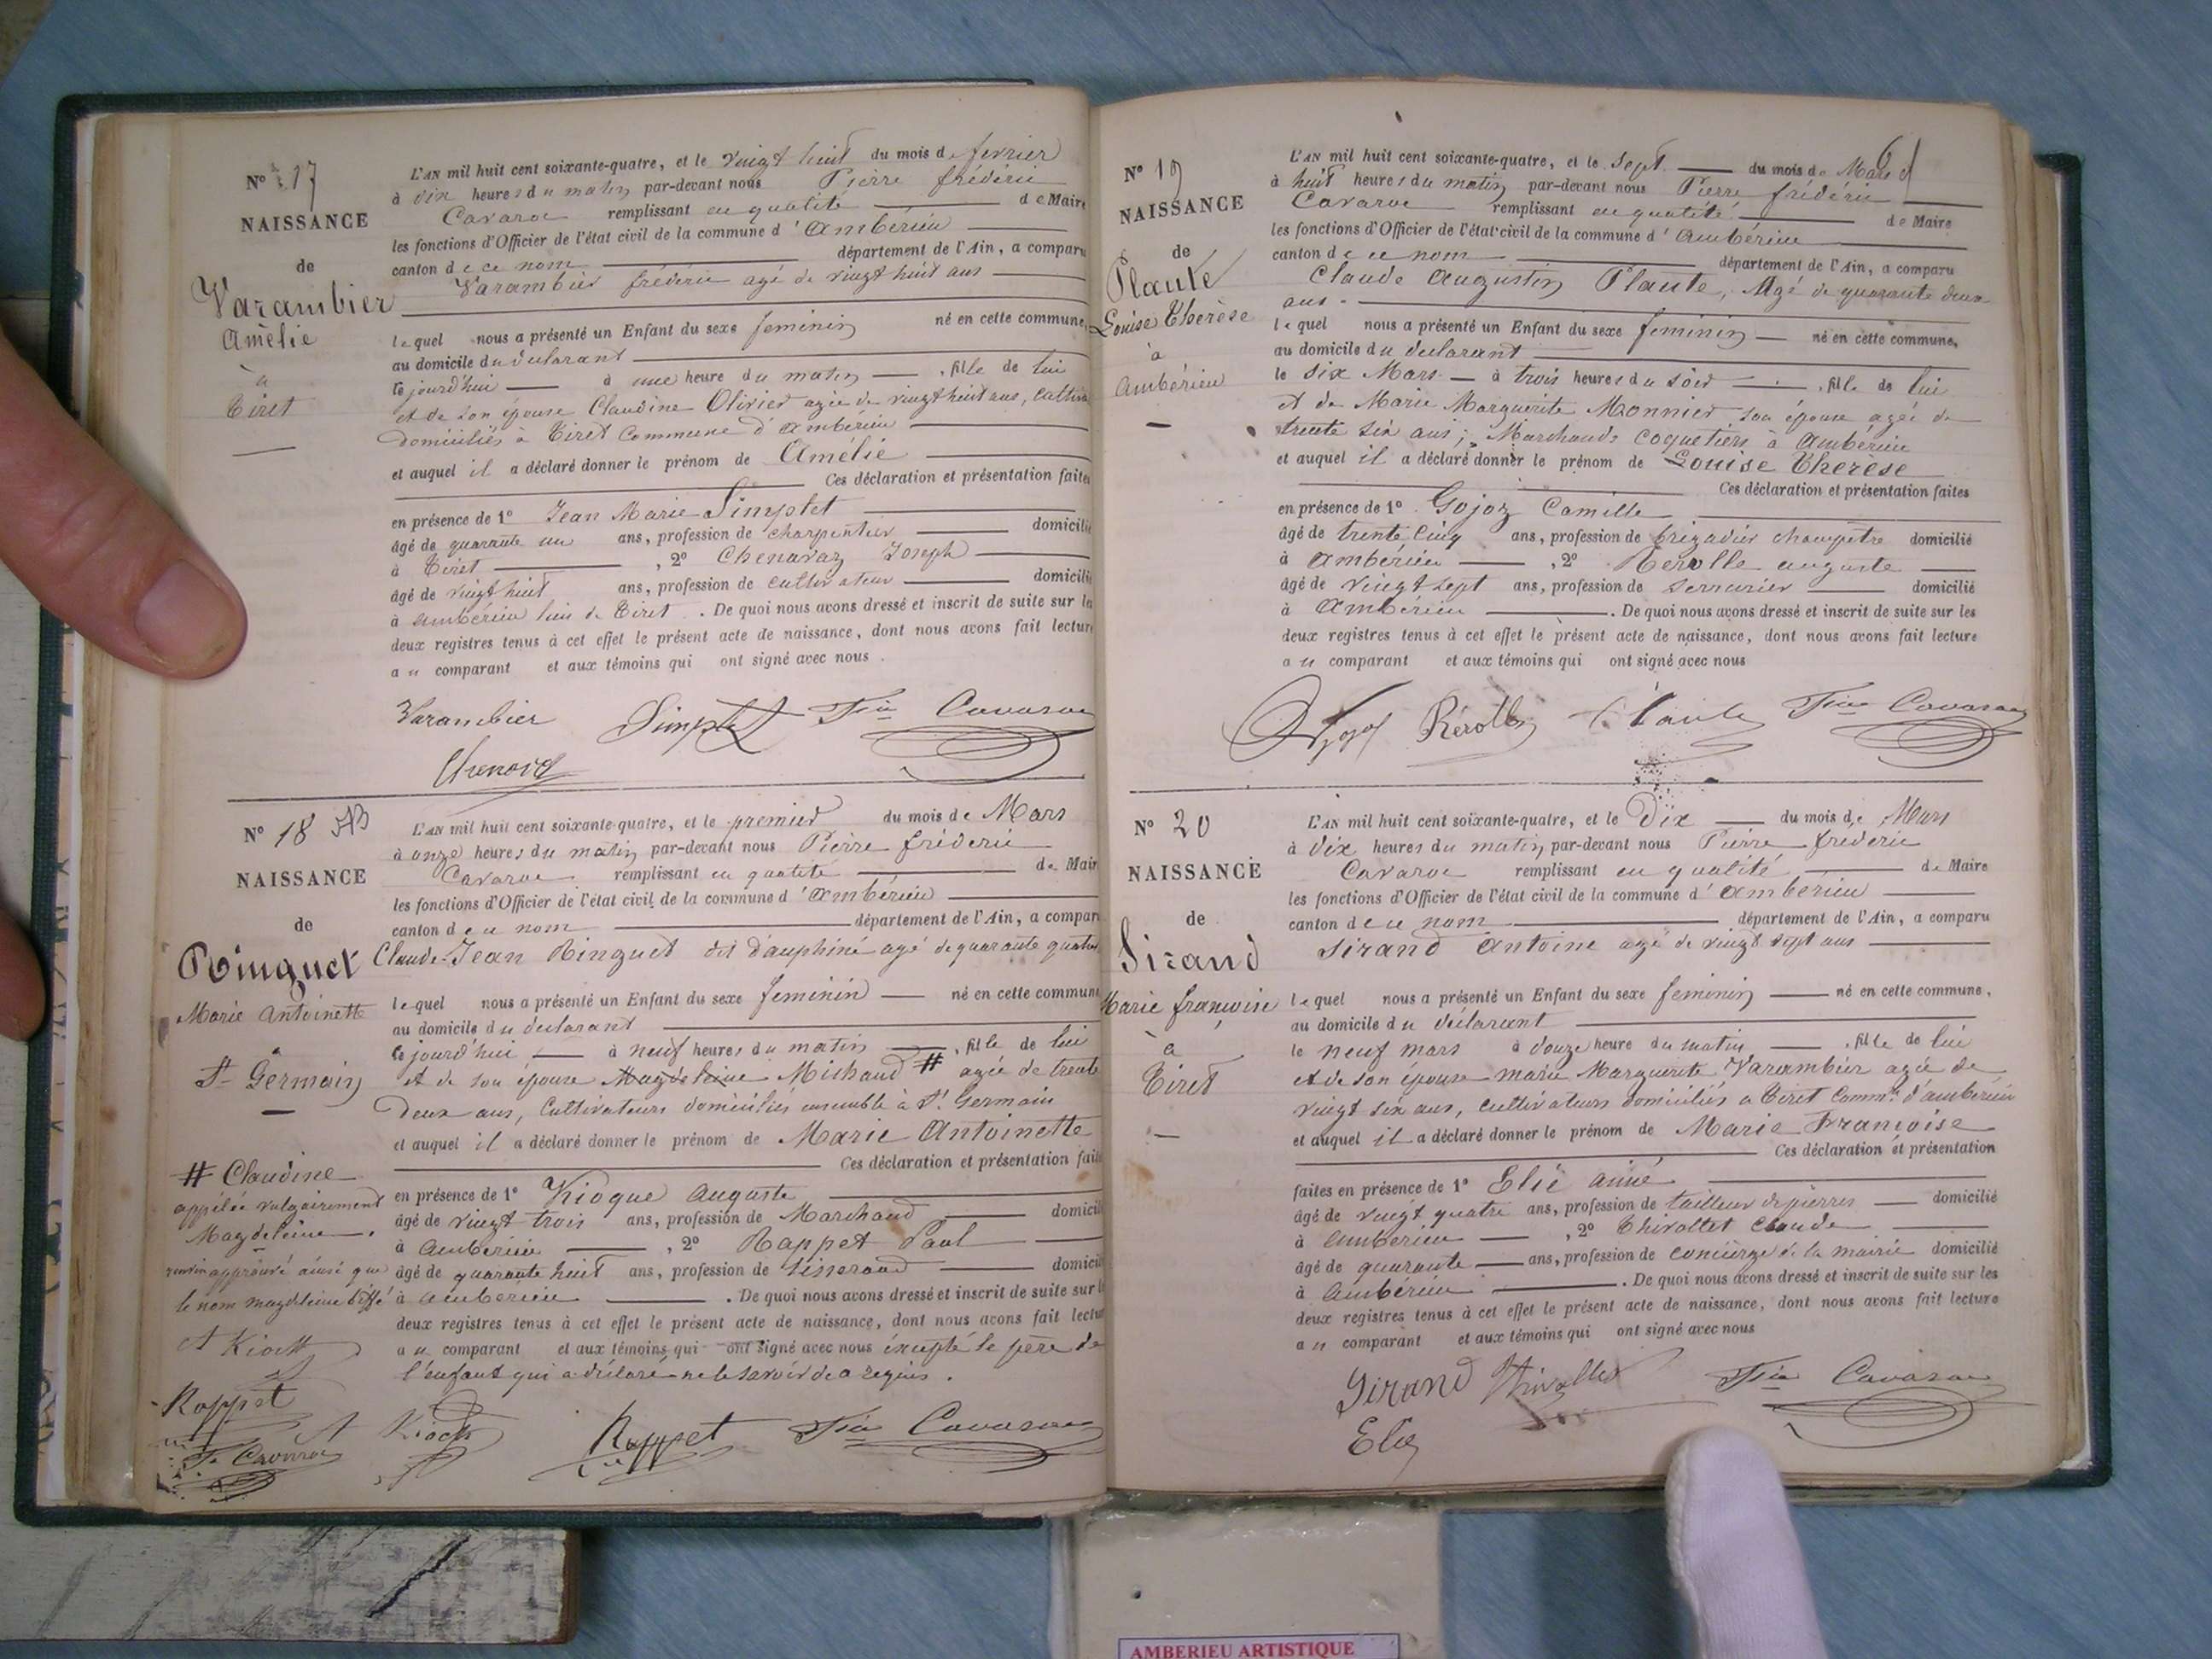 N° 17
NAISSANCE
de
Varambier
Amélie
à
Tiret
L'AN mil huit cent soixante-quatre, et le vingt huit du mois de fevrier
à dix heures du matin par-devant nous Pierre fréderic
Cavaroc remplissant en qualité de Maire
les fonctions d'Officier de l'état civil de la commune d'Ambérieu
canton de ce nom département de l'Ain, a comparu
Varambier fréderic agé de vingt huit ans
lequel nous a présenté un Enfant du sexe feminin né en cette commune,
au domicile du declarant
cejourd'hui à une heure du matin, fille de lui
et de son épouse Claudine Olivier agée de vingt huit ans, cultiva
domiciliés à Tiret Commune d'Ambérieu
et auquel il a déclaré donner le prénom de Amélie
Ces déclaration et présentation faites
en présence de 1° Jean Marie Simplet
âgé de quarante un ans, profession de charpentier domicilié
à Tiret, 2° Chenavaz Joseph
âgé de vingt huit ans, profession de cultivateur domicilié
à ambérieu lieu de Tiret. De quoi nous avons dressé et inscrit de suite sur les
deux registres tenus à cet effet le présent acte de naissance, dont nous avons fait lecture
au comparant et aux témoins qui ont signé avec nous.
Varambier Simplet Fic Cavaroc
N° 18
NAISSANCE
de
Ringuet
Marie Antoinette
à
St Germain
# Claudine
appelée vulgairement
Magdeleine.
renvoi approuvé ainsi que
le nom magdeleine biffé
A Kioch
Rappet
F. Cavaroc
L'AN mil huit cent soixante-quatre, et le premier du mois de Mars
à onze heures du matin par-devant nous Pierre fréderic
Cavaroc remplissant en qualité de Mair
les fonctions d'Officier de l'état civil de la commune d'Ambérieu
canton de ce nom département de l'Ain, a compar
Claude-Jean Ringuet dit dauphiné agé de quarante quatre
lequel nous a présenté un Enfant du sexe feminin né en cette commune
au domicile du declarant
cejourd'hui à neuf heures du matin, fille de lui
et de son épouse Magdeleine Michaud # agée de trente
deux ans, Cultivateurs domiciliés ensemble à St Germain
et auquel il a déclaré donner le prénom de Marie Antoinette
Ces déclaration et présentation faite
en présence de 1° Kioque Auguste
âgé de vingt trois ans, profession de Marchand domicili
à Ambérieu, 2° Rappet Paul
âgé de quarante huit ans, profession de tisserand domicili
à ambérieu. De quoi nous avons dressé et inscrit de suite sur l
deux registres tenus à cet effet le présent acte de naissance, dont nous avons fait lectu
au comparant et aux témoins qui ont signé avec nous excepté le père de
l'enfant qui a déclaré ne le savoir de ce requis.
A Kioch Rappet Fic Cavaroc
N° 19
NAISSANCE
de
Plaute
Louise Therèse
à
Ambérieu
L'AN mil huit cent soixante-quatre, et le sept du mois de Mars
à huit heures du matin par-devant nous Pierre fréderic
Cavaroc remplissant en qualité de Maire
les fonctions d'Officier de l'état civil de la commune d'Ambérieu
canton de ce nom département de l'Ain, a comparu
Claude Augustin Plaute, Agé de quarante deux
ans.
lequel nous a présenté un Enfant du sexe feminin né en cette commune,
au domicile du declarant
le six Mars à trois heures du soir, fille de lui
et de Marie Marguerite Monnier son épouse agée de
trente six ans; Marchands coquetiers à Ambérieu
et auquel il a déclaré donner le prénom de Louise Therèse
Ces déclaration et présentation faites
en présence de 1° Gojoz Camille
âgé de trente cinq ans, profession de brigadier champêtre domicilié
à Ambérieu, 2° Rerolle auguste
âgé de vingt sept ans, profession de serrurier domicilié
à Ambérieu. De quoi nous avons dressé et inscrit de suite sur les
deux registres tenus à cet effet le présent acte de naissance, dont nous avons fait lecture
au comparant et aux témoins qui ont signé avec nous
Gojoz Rérolle Plaute Fic Cavaroc
N° 20
NAISSANCE
de
Sirand
Marie françoise
à
Tiret
L'AN mil huit cent soixante-quatre, et le Dix du mois de Mars
à dix heures du matin par-devant nous Pierre fréderic
Cavaroc remplissant en qualité de Maire
les fonctions d'Officier de l'état civil de la commune d'Ambérieu
canton de ce nom département de l'Ain, a comparu
Sirand Antoine agé de vingt sept ans
lequel nous a présenté un Enfant du sexe feminin né en cette commune,
au domicile du déclarant
le neuf mars à douze heure du matin, fille de lui
et de son épouse marie Marguerite Varambier agée de
vingt six ans, cultivateurs domiciliés a Tiret Commne d'ambérieu
et auquel il a déclaré donner le prénom de Marie Françoise
Ces déclaration et présentation
faites en présence de 1° Elie aimé
âgé de vingt quatre ans, profession de tailleur de pierres domicilié
à Ambérieu, 2° Thivollet Claude
âgé de quarante ans, profession de concierge de la mairie domicilié
à Ambérieu. De quoi nous avons dressé et inscrit de suite sur les
deux registres tenus à cet effet le présent acte de naissance, dont nous avons fait lecture
au comparant et aux témoins qui ont signé avec nous
Sirand Thivollet Fic Cavaroc
Elie
AMBERIEU ARTISTIQUE